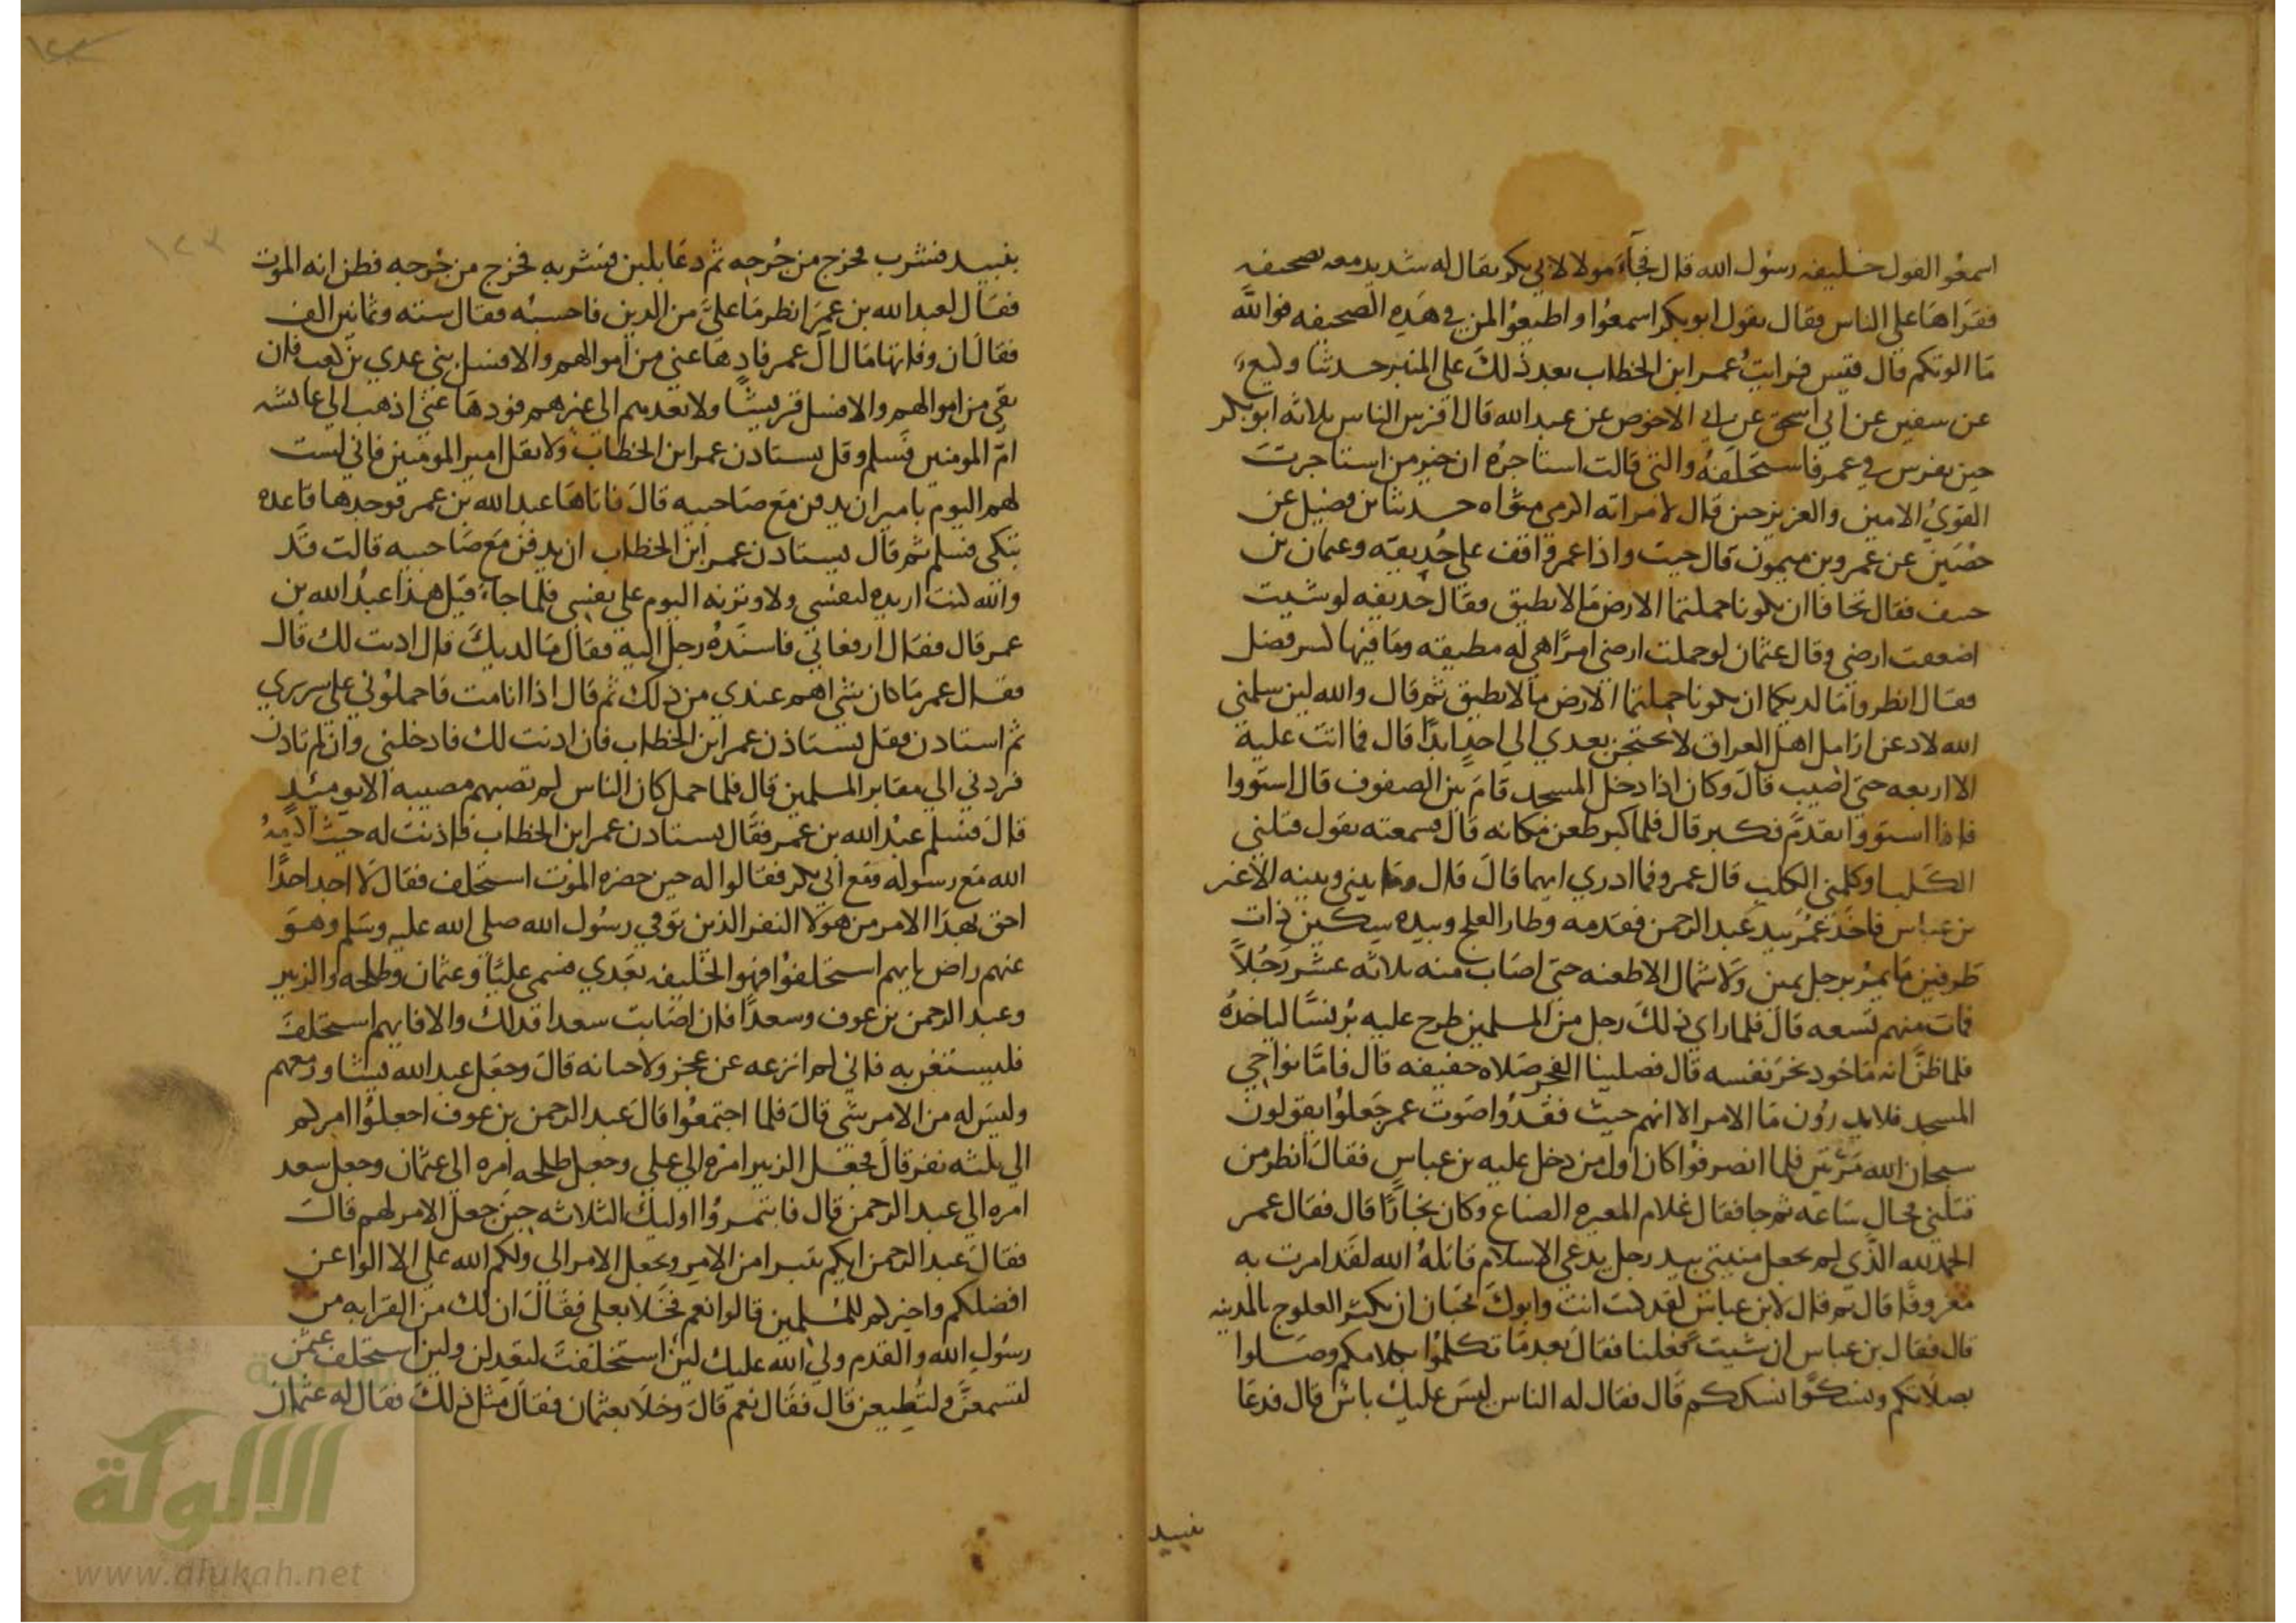 اسمعوا لقول خليفه رسول الله قال فجآء مولا لابي بكر يقال له شديد معه صحيفه
فقراها على الناس فقال يقول ابوبكر اسمعوا واطيعوا لمن في هذه الصحيفه فوالله
ما الوتكم قال قيس فرايت عمر ابن الخطاب بعد ذلك على المنبر حدثنا وكيع
عن سفين عن ابي اسحق عن ابي الاحوص عن عبد الله قال افرس الناس ثلاثه ابو بكر
حين تفرس في عمر فاستخلفه والتي قالت استاجره ان خير من استاجرت
القوي الامين والعزيز حين قال لامراته اكرمي مثواه حدثنا بن فضيل عن
حصين عن عمرو بن ميمون قال جيت واذا عمر واقف على حذيفه وعثمان بن
حنيف فقال تخافا ان تكونا حملتما الارض ما لا تطيق فقال حذيفه لو شيت
اضعفت ارضي وقال عثمان لو حملت ارضي امرا هي له مطيقه وما فيها كبير فضل
فقال انظروا ما لديكما ان تكونا حملتما الارض ما لا تطيق ثم قال والله لين سلمني
الله لادعن ارامل اهل العراق لا يحتجن بعدي الى احد ابدا قال فما اتت عليه
الا اربعه حتى اصيب قال وكان اذا دخل المسجد قام بين الصفوف قال استووا
فاذا استووا تقدم فكبر قال فلما كبر طعن مكانه قال فسمعته يقول قتلني
الكلب او كلني الكلب قال عمرو فما ادري ايهما قال قال وما بيني وبينه الا غير
بن عباس فاخذ عمر بيد عبد الرحمن فقدمه وطار العلج وبيده سكين ذات
طرفين ما يمر برجل يمين ولا شمال الا طعنه حتى اصاب منه ثلاثه عشر رجلا
فمات منهم تسعه قال فلما راى ذلك رجل من المسلمين طرح عليه برنسا لياخذه
فلما ظن انه ماخوذ نحر نفسه قال فصلينا الفجر صلاه خفيفه قال فاما نواحي
المسجد فلا يدرون ما الامر الا انهم حيث فقدوا صوت عمر جعلوا يقولون
سبحان الله مرتين فلما انصرفوا كان اول من دخل عليه بن عباس فقال انظر من
قتلني فجال ساعه ثم جا فقال غلام المغيره الصناع وكان نجارا قال فقال عمر
الحمد لله الذي لم يجعل منيتي بيد رجل يدعي الاسلام قاتله الله لقد امرت به
معروفا قال ثم قال لابن عباس لقد كنت انت وابوك تحبان ان تكثر العلوج بالمدينه
قال فقال بن عباس ان شيت فعلنا فقال بعد ما تكلموا بكلامكم وصلوا
بصلاتكم ونسكوا نسككم قال فقال له الناس ليس عليك باس قال فدعا
نبيد
بنبيد فشرب فخرج من جرحه ثم دعا بلبن فشربه فخرج من جرحه فظن انه الموت
فقال لعبد الله بن عمر انظر ما علي من الدين فاحسبه فقال سته وثمانين الف
فقال ان وفا بها مال آل عمر فادها عني من اموالهم والا فسل بني عدي بن كعب فان
بقي من اموالهم والا فسل قريشا ولا تعدهم الى غيرهم فودها عني اذهب الى عائشه
ام المومنين فسلم وقل يستاذن عمر ابن الخطاب ولا تقل امير المومنين فاني لست
لهم اليوم بامير ان يدفن مع صاحبيه قال فاتاها عبد الله بن عمر فوجدها قاعده
تبكي فسلم ثم قال يستاذن عمر ابن الخطاب ان يدفن مع صاحبيه قالت قد
والله كنت اريده لنفسي ولاوثرنه اليوم على نفسي فلما جاء قيل هذا عبد الله بن
عمر قال فقال ارفعاني فاسنده رجل اليه فقال ما لديك قال اذنت لك قال
فقال عمر ما كان شي اهم عندي من ذلك ثم قال اذا انا مت فاحملوني على سريري
ثم استاذن فقل يستاذن عمر ابن الخطاب فان اذنت لك فادخلني وان لم تاذن
فردني الى مقابر المسلمين قال فلما حمل كان الناس لم تصبهم مصيبه الا يوميذ
قال فسلم عبد الله بن عمر فقال يستاذن عمر ابن الخطاب فاذنت له حيث اكرمه
الله مع رسوله ومع ابي بكر فقالوا له حين حضره الموت استخلف فقال لا اجد احدا
احق بهذا الامر من هولا النفر الذين توفي رسول الله صلى الله عليه وسلم وهو
عنهم راض بايهم استخلفوا فهو الخليفه بعدي فسمى عليا وعثمان وطلحه والزبير
وعبد الرحمن بن عوف وسعدا فان اصابت سعدا فذلك والا فايهم استخلف
فليستعن به فاني لم انزعه عن عجز ولا خيانه قال وجعل عبد الله يشاور معهم
وليس له من الامر شي قال فلما اجتمعوا قال عبد الرحمن بن عوف اجعلوا امركم
الى ثلثه نفر قال فجعل الزبير امره الى علي وجعل طلحه امره الى عثمان وجعل سعد
امره الى عبد الرحمن قال فاتمروا اوليك الثلاثه حين جعل الامر لهم قال
فقال عبد الرحمن ايكم يتبرا من الامر ويجعل الامر الي ولكم الله علي الا الوا عن
افضلكم واخيركم للمسلمين قالوا نعم فخلا بعلي فقال ان لك من القرابه من
رسول الله والقدم ولي الله عليك لين استخلفت لتعدلن ولين استخلف عثمن
لتسمعن ولتطيعن قال فقال نعم قال وخلا بعثمان فقال مثل ذلك فقال له عثمان
الألوكة
www.alukah.net